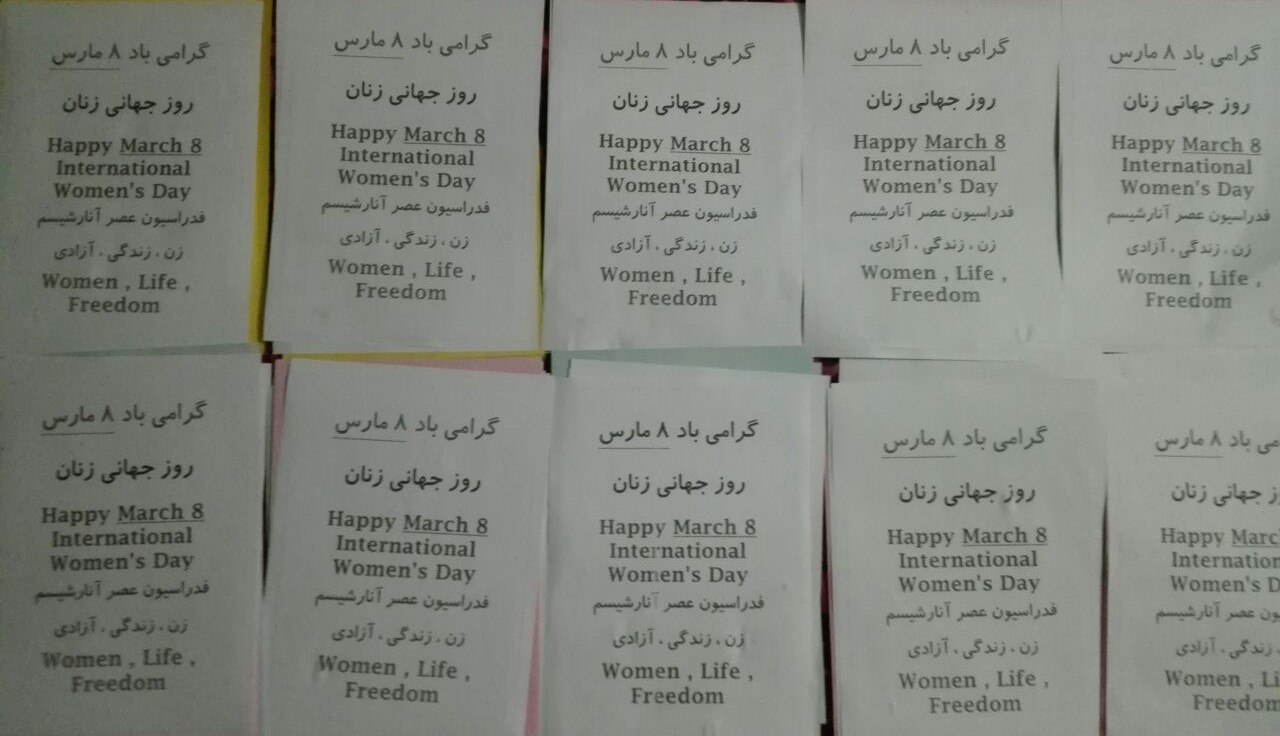 گرامی باد ۸ مارس
روز جهانی زنان
Happy March 8
International
Women's Day
فدراسیون عصر آنارشیسم
زن ، زندگی ، آزادی
Women , Life ,
Freedom
گرامی باد ۸ مارس
روز جهانی زنان
Happy March 8
International
Women's Day
فدراسیون عصر آنارشیسم
زن ، زندگی ، آزادی
Women , Life ,
Freedom
گرامی باد ۸ مارس
روز جهانی زنان
Happy March 8
International
Women's Day
فدراسیون عصر آنارشیسم
زن ، زندگی ، آزادی
Women , Life ,
Freedom
گرامی باد ۸ مارس
روز جهانی زنان
Happy March 8
International
Women's Day
فدراسیون عصر آنارشیسم
زن ، زندگی ، آزادی
Women , Life ,
Freedom
گرامی باد ۸ مارس
روز جهانی زنان
Happy March 8
International
Women's Day
فدراسیون عصر آنارشیسم
زن ، زندگی ، آزادی
Women , Life ,
Freedom
گرامی باد ۸ مارس
روز جهانی زنان
Happy March 8
International
Women's Day
فدراسیون عصر آنارشیسم
زن ، زندگی ، آزادی
Women , Life ,
Freedom
گرامی باد ۸ مارس
روز جهانی زنان
Happy March 8
International
Women's Day
فدراسیون عصر آنارشیسم
زن ، زندگی ، آزادی
Women , Life ,
Freedom
گرامی باد ۸ مارس
روز جهانی زنان
Happy March 8
International
Women's Day
فدراسیون عصر آنارشیسم
زن ، زندگی ، آزادی
Women , Life ,
Freedom
گرامی باد ۸ مارس
روز جهانی زنان
Happy March 8
International
Women's Day
فدراسیون عصر آنارشیسم
زن ، زندگی ، آزادی
Women , Life ,
Freedom
باد ۸ مارس
جهانی زنان
Happy
Women's
عصر آنارشیسم
زندگی ، آزادی
Women ,